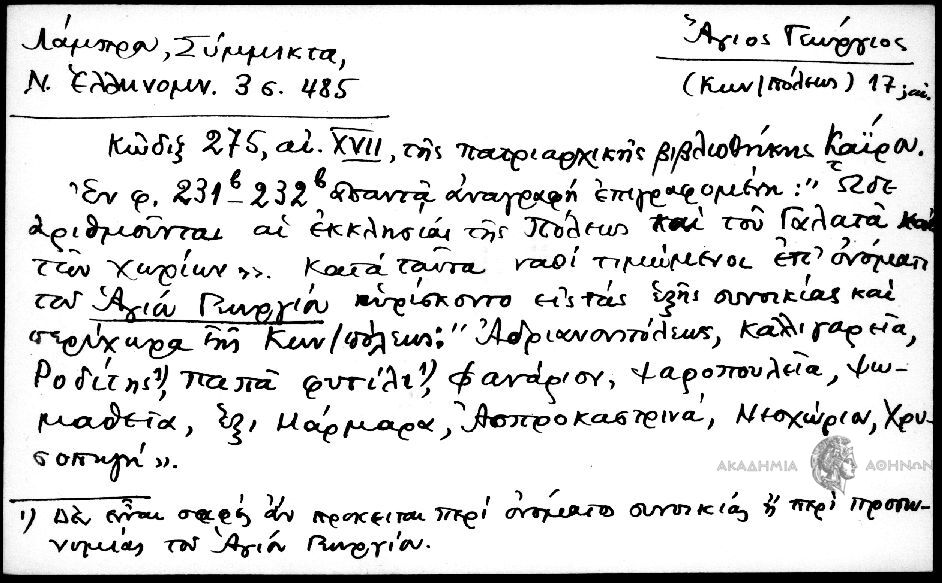 Λάμπρου, Σύμμικτα,
Ν. Ἑλληνομν. 3 σ. 485
Ἅγιος Γεώργιος
(Κων/πόλεως) 17 
Κῶδιξ 275, αἰ. XVII, τῆς πατριαρχικῆς βιβλιοθήκης Καΐρου.
Ἐν φ. 231β–232β ἀπαντᾷ ἀναγραφή ἐπιγραφομένη: "Ὧδε
ἀριθμοῦνται αἱ ἐκκλησίαι τῆς Πόλεως καὶ τοῦ Γαλατᾶ καὶ
τῶν χωρίων». Κατά ταῦτα ναοί τιμώμενοι ἐπ' ὀνόματι
τοῦ Ἁγίου Γεωργίου εὑρίσκοντο εἰς τάς ἑξῆς συνοικίας καί
περίχωρα τῆς Κων/πόλεως: "Ἀδριανουπόλεως, Καλιγαρεῖα,
Ροδίτης¹⁾, παπᾶ φυτίλι¹⁾, Φανάριον, Ψαροπουλεῖα, Ψω-
μαθεῖα, ἕξι Μάρμαρα, Ἀσπροκαστρινά, Νεοχώριον, Χρυ-
σοπηγή».
ΑΚΑΔΗΜΙΑ ΑΘΗΝΩΝ
¹⁾ Δέν εἶναι σαφές ἄν πρόκειται περί ὀνόματος συνοικίας ἤ περί προσω-
νυμίας τοῦ Ἁγίου Γεωργίου.